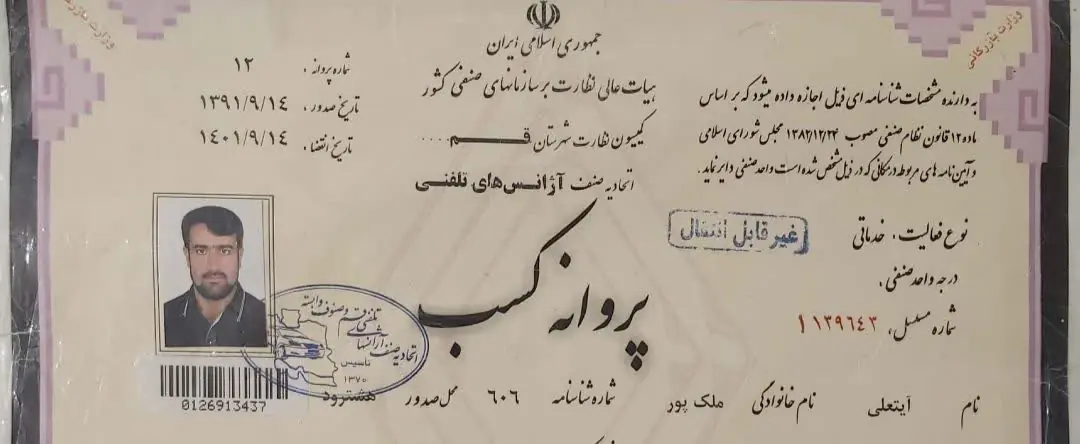 جمهوری اسلامی ایران
هیات عالی نظارت بر سازمانهای صنفی کشور
کمیسیون نظارت شهرستان قم
اتحادیه صنف آژانس‌های تلفنی
وزارت بازرگانی
وزارت بازرگانی
به دارنده مشخصات شناسنامه ای ذیل اجازه داده میشود که بر اساس
ماده ۱۲ قانون نظام صنفی مصوب ۱۳۸۲/۱۲/۲۴ مجلس شورای اسلامی
و آیین نامه های مربوطه در مکانی که در ذیل مشخص شده است واحد صنفی دایر نماید.
شماره پروانه: ۱۲
تاریخ صدور: ۱۳۹۱/۹/۱۴
تاریخ انقضاء: ۱۴۰۱/۹/۱۴
نوع فعالیت: خدماتی
غیر قابل انتقال
درجه واحد صنفی:
شماره مسلسل: ۱۱۳۹۶۴۳
پروانه کسب
اتحادیه صنف آژانسهای تلفنی قم و صنوف وابسته
تاسیس
۱۳۷۰
0126913437
نام آیتعلی نام خانوادگی ملک پور شماره شناسنامه ۶۰۶ محل صدور هشترود